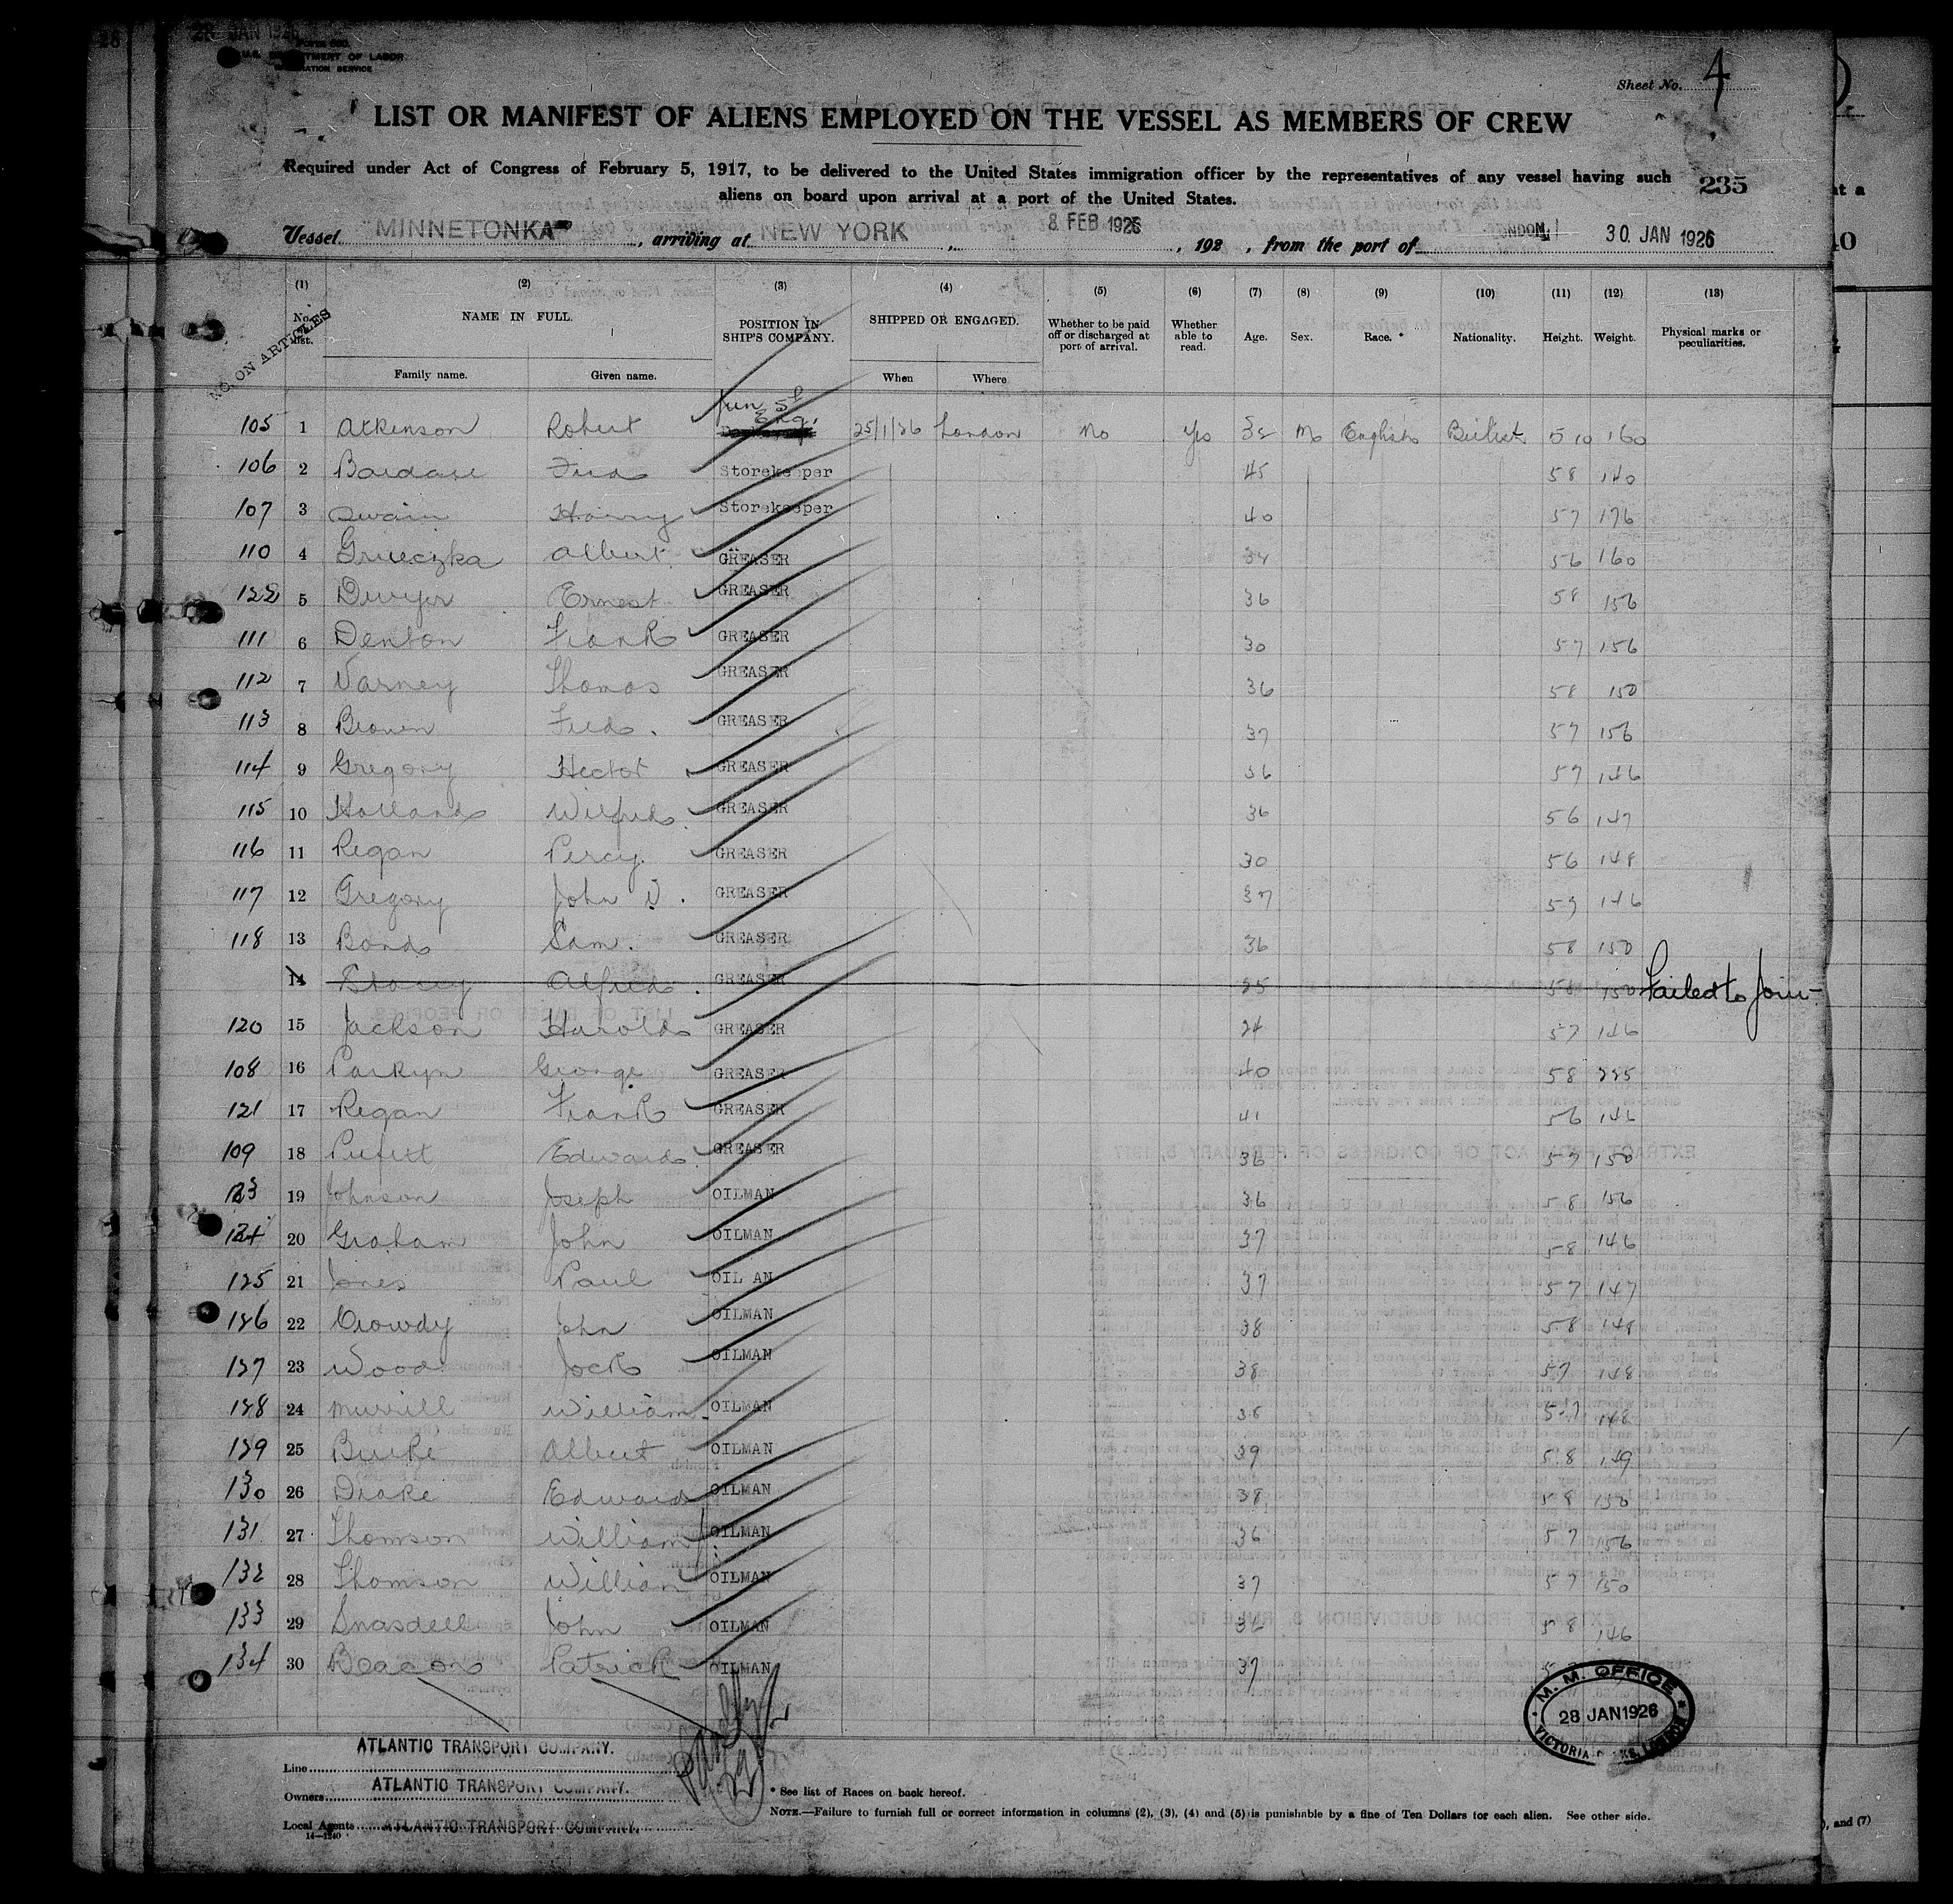 28 JAN 1926
Form 680
U.S. DEPARTMENT OF LABOR
IMMIGRATION SERVICE
Sheet No. 4
LIST OR MANIFEST OF ALIENS EMPLOYED ON THE VESSEL AS MEMBERS OF CREW
Required under Act of Congress of February 5, 1917, to be delivered to the United States immigration officer by the representatives of any vessel having such
aliens on board upon arrival at a port of the United States.
235
Vessel MINNETONKA, arriving at NEW YORK, 8 FEB 1926, 192 , from the port of LONDON 30. JAN 1926
(1) (2) (3) (4) (5) (6) (7) (8) (9) (10) (11) (12) (13)
NO. ON ARTICLES No. list. NAME IN FULL. POSITION IN SHIP'S COMPANY. SHIPPED OR ENGAGED. Whether to be paid off or discharged at port of arrival. Whether able to read. Age. Sex. Race. * Nationality. Height. Weight. Physical marks or peculiarities.
Family name. Given name. When Where
105 1 Atkinson Robert Jun 5th Eng. 25/1/26 London No Yes M English British 5 10 160
106 2 Fred Storekeeper 45 5 8 140
107 3 Swain Harry Storekeeper 40 5 7 176
110 4 Grueczka Albert GREASER 5 6 160
122 5 Dwyer Ernest GREASER 36 5 8 156
111 6 Denton Frank GREASER 30 5 7 156
112 7 Varney Thomas GREASER 36 5 8 150
113 8 Brown Fred. GREASER 37 5 7 156
114 9 Gregory Hector GREASER 36 5 7 146
115 10 Holland Wilfred. GREASER 36 5 6 147
116 11 Regan Percy. GREASER 30 5 6 148
117 12 Gregory John D. GREASER 37 5 7 146
118 13 Bond Sam. GREASER 36 5 8 150
14 Stacey Alfred. GREASER 25 5 8 150 Failed to Join
120 15 Jackson Harold GREASER 24 5 7 146
108 16 Parkyn George GREASER 40 5 8 225
121 17 Regan Frank GREASER 41 5 6 146
109 18 Edward. GREASER 36 5 7 150
123 19 Johnson Joseph OILMAN 36 5 8 156
124 20 Graham John OILMAN 37 5 8 146
125 21 Jones Paul OIL AN 37 5 7 147
126 22 Crowdy John OILMAN 38 5 8 148
127 23 Wood Jock OILMAN 38 5 7 148
128 24 Murrill William. OILMAN 36 5 7 148
129 25 Burke Albert OILMAN 39 5 8 149
130 26 Drake Edward OILMAN 38 5 8 150
131 27 Thomson William OILMAN 36 5 7 156
132 28 Thomson William OILMAN 37 5 7 150
133 29 Snasdell John OILMAN 5 8 146
134 30 Deacon Patrick OILMAN 37
M. M. OFFICE
28 JAN 1926
VICTORIA DOCKS, LONDON
Line ATLANTIC TRANSPORT COMPANY.
Owners ATLANTIC TRANSPORT COMPANY.
Local Agents ATLANTIC TRANSPORT COMPANY.
14—1240
* See list of Races on back hereof.
NOTE.—Failure to furnish full or correct information in columns (2), (3), (4) and (5) is punishable by a fine of Ten Dollars for each alien. See other side.
), and (7)